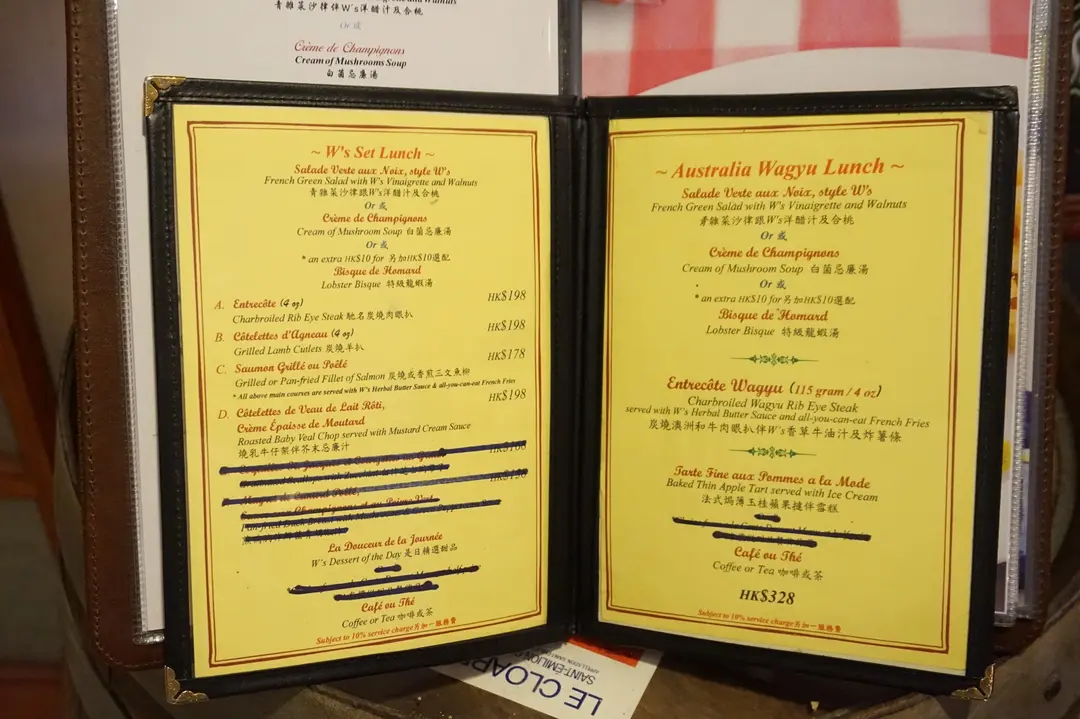 青雜菜沙律伴W's洋醋汁及合桃
Or 或
Crème de Champignons
Cream of Mushrooms Soup
白菌忌廉湯
~ W's Set Lunch ~
Salade Verte aux Noix, style W's
French Green Salad with W's Vinaigrette and Walnuts
青雜菜沙律跟W's洋醋汁及合桃
Or 或
Crème de Champignons
Cream of Mushroom Soup 白菌忌廉湯
Or 或
* an extra HK$10 for 另加HK$10選配
Bisque de Homard
Lobster Bisque 特級龍蝦湯
A. Entrecôte (4 oz) HK$198
Charbroiled Rib Eye Steak 馳名炭燒肉眼扒
B. Côtelettes d'Agneau (4 oz) HK$198
Grilled Lamb Cutlets 炭燒羊扒
C. Saumon Grillé ou Poêlé HK$178
Grilled or Pan-fried Fillet of Salmon 炭燒或香煎三文魚柳
* All above main courses are served with W's Herbal Butter Sauce & all-you-can-eat French Fries
D. Côtelettes de Veau de Lait Rôti, HK$198
Crème Épaisse de Moutard
Roasted Baby Veal Chop served with Mustard Cream Sauce
燒乳牛仔架伴芥末忌廉汁
La Douceur de la Journée
W's Dessert of the Day 是日精選甜品
Café ou Thé
Coffee or Tea 咖啡或茶
Subject to 10% service charge 另加一服務費
~ Australia Wagyu Lunch ~
Salade Verte aux Noix, style W's
French Green Salad with W's Vinaigrette and Walnuts
青雜菜沙律跟W's洋醋汁及合桃
Or 或
Crème de Champignons
Cream of Mushroom Soup 白菌忌廉湯
Or 或
* an extra HK$10 for 另加HK$10選配
Bisque de Homard
Lobster Bisque 特級龍蝦湯
Entrecôte Wagyu (115 gram / 4 oz)
Charbroiled Wagyu Rib Eye Steak
served with W's Herbal Butter Sauce and all-you-can-eat French Fries
炭燒澳洲和牛肉眼扒伴W's香草牛油汁及炸薯條
Tarte Fine aux Pommes a la Mode
Baked Thin Apple Tart served with Ice Cream
法式焗薄玉桂蘋果撻伴雪糕
Café ou Thé
Coffee or Tea 咖啡或茶
HK$328
Subject to 10% service charge 另加一服務費
LE CLOA
SAINT-ÉMILION